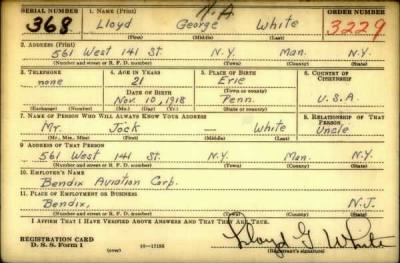 SERIAL NUMBER 1. NAME (Print) N.A. ORDER NUMBER
368 Lloyd George White 3229
(First) (Middle) (Last)
2. ADDRESS (Print)
561 West 141 St. N.Y. Man. N.Y.
(Number and street or R. F. D. number) (Town) (County) (State)
3. TELEPHONE 4. AGE IN YEARS 5. PLACE OF BIRTH 6. COUNTRY OF CITIZENSHIP
none 21 Erie
DATE OF BIRTH (Town or county)
Nov. 10, 1918 Penn. U.S.A.
(Exchange) (Number) (Mo.) (Day) (Yr.) (State or country)
7. NAME OF PERSON WHO WILL ALWAYS KNOW YOUR ADDRESS 8. RELATIONSHIP OF THAT PERSON
Mr. Jock — White Uncle
(Mr., Mrs., Miss) (First) (Middle) (Last)
9. ADDRESS OF THAT PERSON
561 West 141 St. N.Y. Man. N.Y.
(Number and street or R. F. D. number) (Town) (County) (State)
10. EMPLOYER'S NAME
Bendix Aviation Corp.
11. PLACE OF EMPLOYMENT OR BUSINESS
Bendix, N.J.
(Number and street or R. F. D. number) (Town) (County) (State)
I AFFIRM THAT I HAVE VERIFIED ABOVE ANSWERS AND THAT THEY ARE TRUE.
REGISTRATION CARD
D. S. S. Form 1 (over) 16—17105 Lloyd G White
(Registrant's signature)